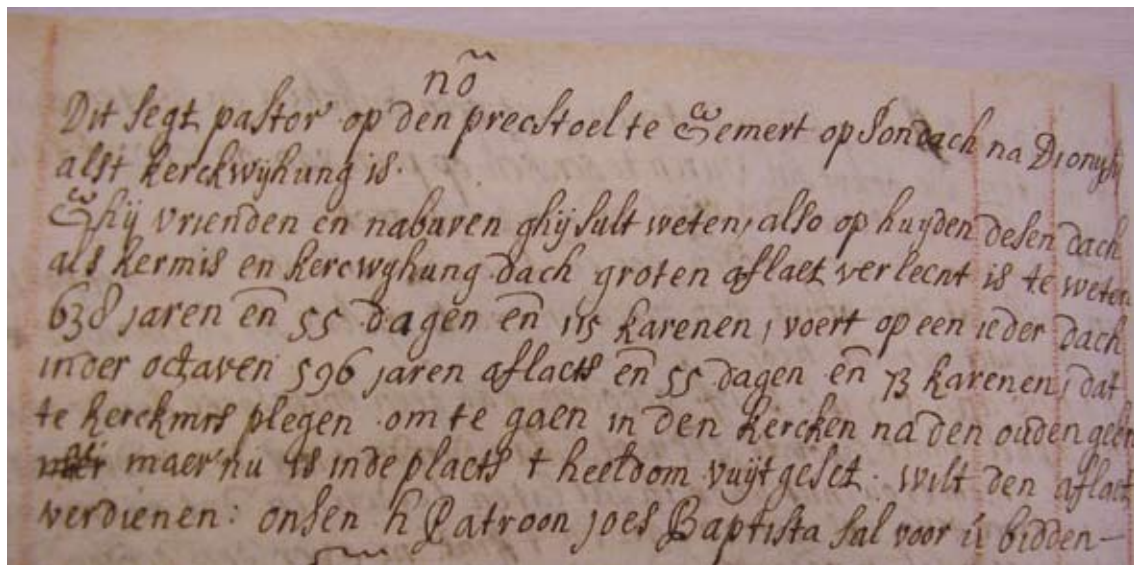 nō
Dit segt pastor op den precstoel te Gemert op sondach na Dionysij
alst kerckwijhung is.
Ghij vrienden en naburen ghij sult weten, also op huyden desen dach
als kermis en kercwyhung dach groten aflaet verleent is te weten
638 jaren en̄ 55 dagen en̄ 115 karenen, voert op een ieder dach
inder octaven 596 jaren aflacts en̄ 55 dagen en̄ 73 karenen, dat
te kerckmis plegen om te gaen in den kercken na den ouden
maer nu is inde placts t heeldom vuijt geset. wilt den aflaet
verdienen: onsen h Patroon joes Baptista sal voor ú bidden—